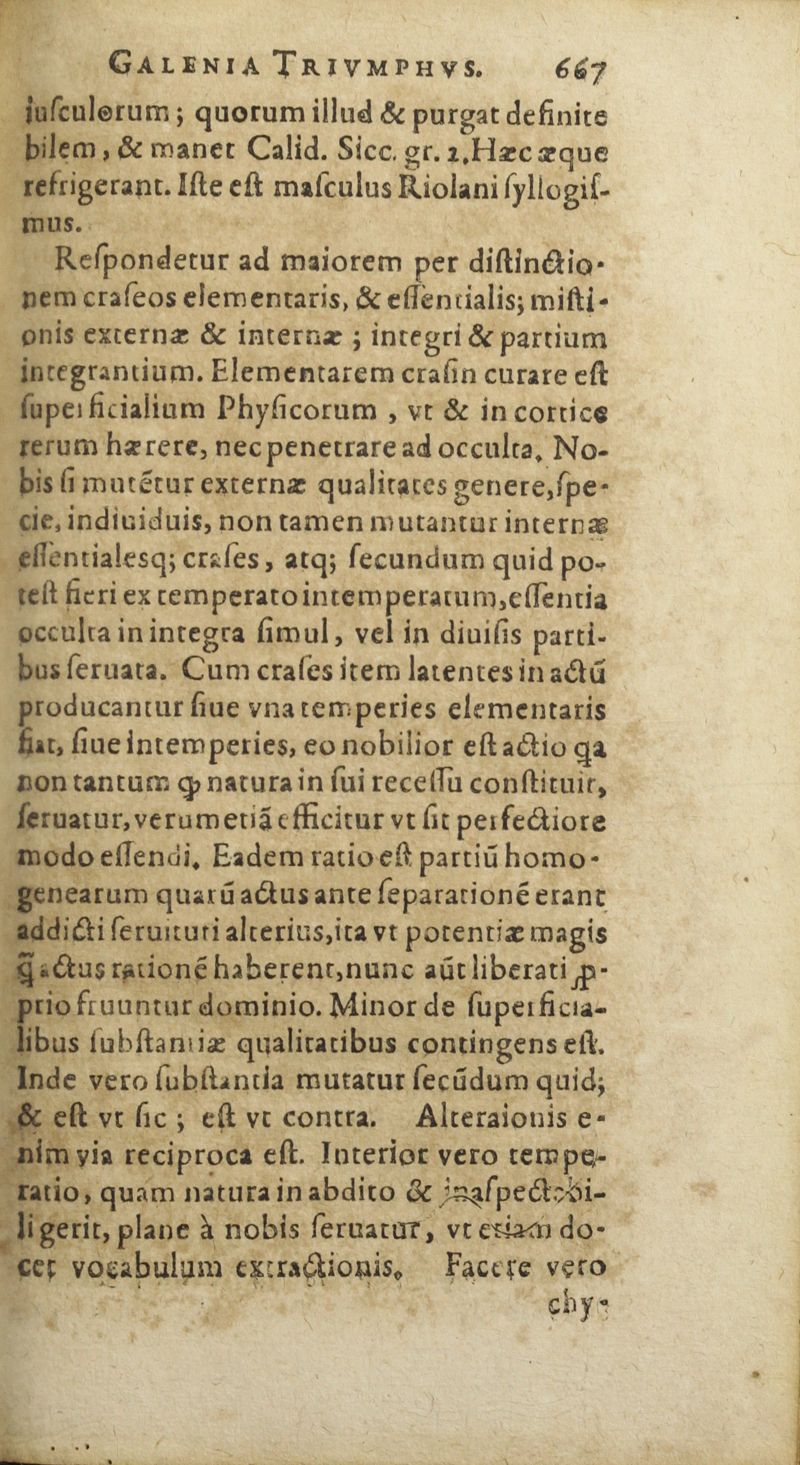 GALENIA TRIVMPHVS. 667
juſculorum; quorum illud & purgat definite
bilem, & manet Calid. Sicc. gr. 2. Hæc æque
refrigerant. Iſte eſt maſculus Riolani ſyllogiſ-
mus.
Reſpondetur ad maiorem per diſtinctio-
nem craſeos elementaris, & eſſentialis; miſti-
onis externæ & internæ; integri & partium
integrantium. Elementarem craſin curare eſt
ſuperficialium Phyſicorum, vt & in cortice
rerum hærere, nec penetrare ad occulta. No-
bis ſi mutētur externæ qualitates genere, ſpe-
cie, indiuiduis, non tamen mutantur internæ
eſſentialesq; craſes, atq; ſecundum quid po-
teſt fieri ex temperato intemperatum, eſſentia
occulta in integra ſimul, vel in diuiſis parti-
bus ſeruata. Cum craſes item latentes in actū
producantur ſiue vna temperies elementaris
fiat, ſiue intemperies, eo nobilior eſt actio qa
non tantum ꝙ natura in ſui receſſu conſtituit,
ſeruatur, verum etiā efficitur vt ſit perfectiore
modo eſſendi. Eadem ratio eſt partiū homo-
genearum quarū actus ante ſeparationē erant
addicti ſeruituti alterius, ita vt potentiæ magis
q̄ actus rationē haberent, nunc aūt liberati ꝓ-
prio fruuntur dominio. Minor de ſuperficia-
libus ſubſtantiæ qualitatibus contingens eſt.
Inde vero ſubſtantia mutatur ſecūdum quid;
& eſt vt ſic; eſt vt contra. Alteraionis e-
nim via reciproca eſt. Interior vero tempe-
ratio, quam natura in abdito & inaſpectobi-
li gerit, plane à nobis ſeruatur, vt etiam do-
cet vocabulum extractionis. Facere vero
chy-